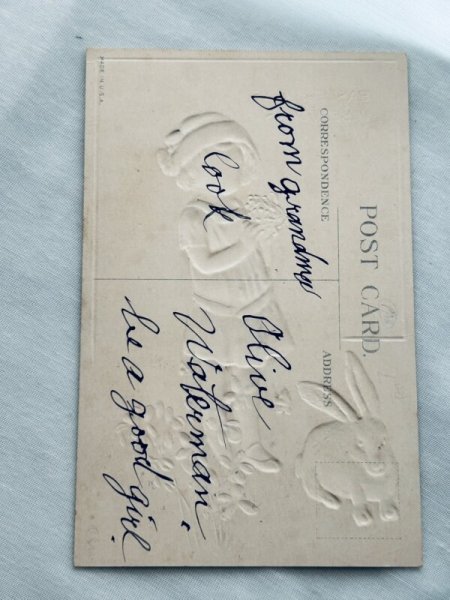 POST CARD.
CORRESPONDENCE
ADDRESS
from grandma
Cook
Olive
Waterman.
be a good girl.
MADE IN U.S.A.